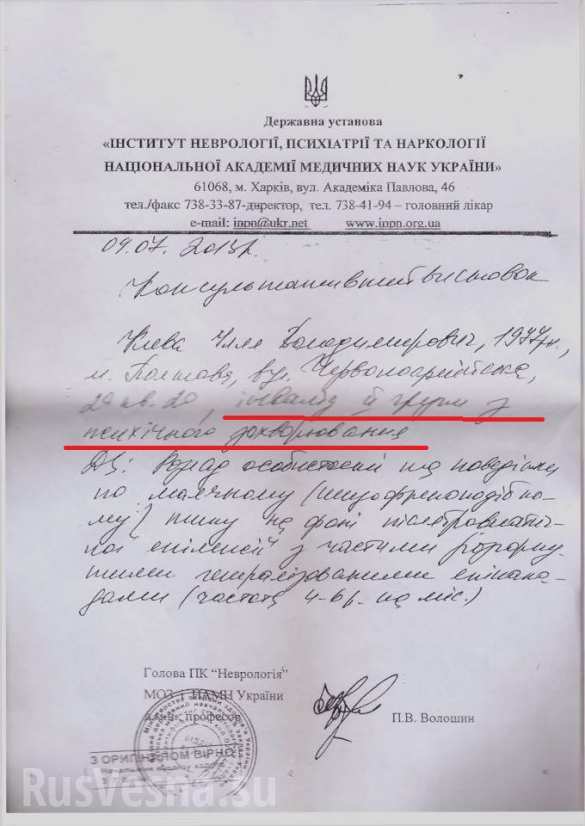 Державна установа
«ІНСТИТУТ НЕВРОЛОГІЇ, ПСИХІАТРІЇ ТА НАРКОЛОГІЇ
НАЦІОНАЛЬНОЇ АКАДЕМІЇ МЕДИЧНИХ НАУК УКРАЇНИ»
61068, м. Харків, вул. Академіка Павлова, 46
тел./факс 738-33-87-директор, тел. 738-41-94 – головний лікар
e-mail: inpn@ukr.net www.inpn.org.ua
09.07.2013р.
Консультативний висновок
Ілля Володимирович, 1977
м. Полтава, вул. Червоноармійська,
інвалід групи з
психічного захворювання
Розлад особистості та поведінки
по маячному (шизофреноподібно-
му) типу на фоні післятравматич-
ної епілепсії з частими
генералізованими епінапа-
дами (частота 4-6 р. на міс.)
Голова ПК “Неврологія”
МОЗ і НАМН України
професор
П.В. Волошин
З ОРИГІНАЛОМ ВІРНО
RusVesna.su